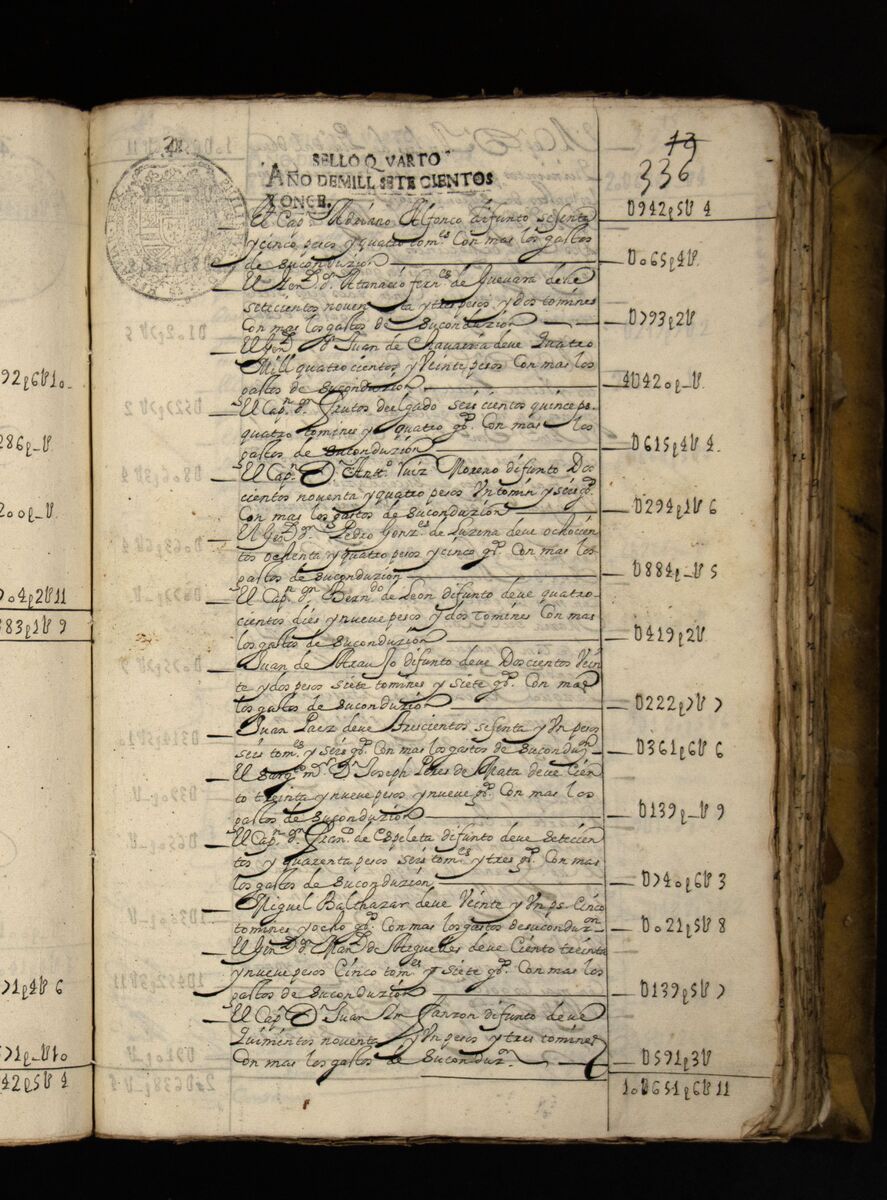 SELLO QVARTO
AÑO DE MILL SETECIENTOS
Y ONCE.
13
336
U942p5U 4
El Capn. Adriano Alfonco difunto sesenta
y cinco pesos y quatro tomes. Con mas los gastos
de su conduzion — U065p4U.
El Genl. Dn. Atanacio fernes. de Guevara deve
setecientos noventa y tres pesos y dos tomines
Con mas los gastos de su conduzion — U793p2U
El Genl. Dn. Juan de Chavarria deve quatro
Mill quatrocientos y Veinte pesos Con mas los
gastos de su conduzion — 4U420p_U.
El Capn. dn. Frutos delgado seis cientos quince ps.
quatro tomines y quatro gs. Con mas los
gastos de su conduzion — U615p4U 4.
El Capn. Dn. Anto. Ruiz Moreno difunto Dos
cientos noventa y quatro pesos Un tomin y seis gs.
Con mas los gastos de su conduzion — U294p1U 6
El Genl. Dn. Pedro Gonzs. de Luzena deve ochocien
tos ochenta y quatro pesos y cinco gs. Con mas los
gastos de su conduzion — U884p_U 5
El Capn. dn. Berndo. de Leon difunto deve quatro
cientos dies y nueve pesos y dos tomines Con mas
los gastos de su conduzion — U419p2U
Juan de Araujo difunto deve Doscientos Vein
te y dos pesos siete tomines y siete gs. Con mas
los gastos de su conduzion — U222p7U 7
Juan Paez deve trescientos sesenta y Un pesos
seis tomes. y seis gs. Con mas los gastos de su conduzn. — U361p6U 6
El Sargto. mr. Dn. Joseph Peres de Mata deve Cien
to treinta y nueve pesos y nueve gs. Con mas los
gastos de su conduzion — U139p_U 9
El Capn. dn. Franco. de Espeleta difunto deve setecien
tos y quarenta pesos seis tomes. y tres gs. Con mas
los gastos de su conduzion — U740p6U 3
Miguel Balthazar deve Veinte y Un ps. Cinco
tomines y ocho gs. Con mas los gastos de su conduzon. — U021p5U 8
El Genl. Dn. Manl. de Arguelles deve Ciento treinta
y nueve pesos Cinco tomes. y siete gs. Con mas los
gastos de su conduzion — U139p5U 7
El Capn. Dn. Juan Garzon difunto deve
Quinientos noventa y Un pesos y tres tomines
Con mas los gastos de su conduzn. — U591p3U
10U651p6U 11
92p6U10.
286p_U.
200p_U.
704p2U11
383p1U 9
71p4U 6
571p_U10
42p5U 4